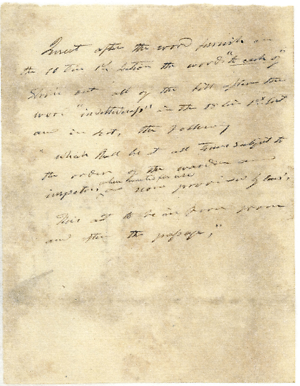 Insert after the word
the 10 line 1st section the words "to each of"
Strike out all of the bill after the
word in the 18 line 1st sect
and insert, the following
which shall be at all times subject to
the orders of the warden and
inspectors, as now provided by law.
This act to be in force from
and after its passage,"